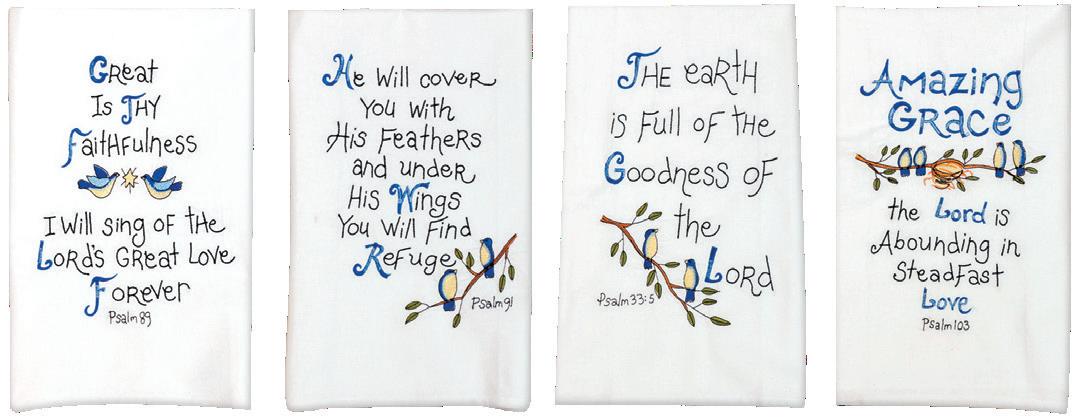 Great
Is Thy
Faithfulness
I Will sing of the
Lord's Great Love
Forever
Psalm 89
He Will cover
You With
His Feathers
and under
His Wings
You Will Find
Refuge
Psalm 91
The earth
is Full of the
Goodness of
the
Lord
Psalm 33:5
Amazing
Grace
the Lord is
Abounding in
Steadfast
Love
Psalm 103